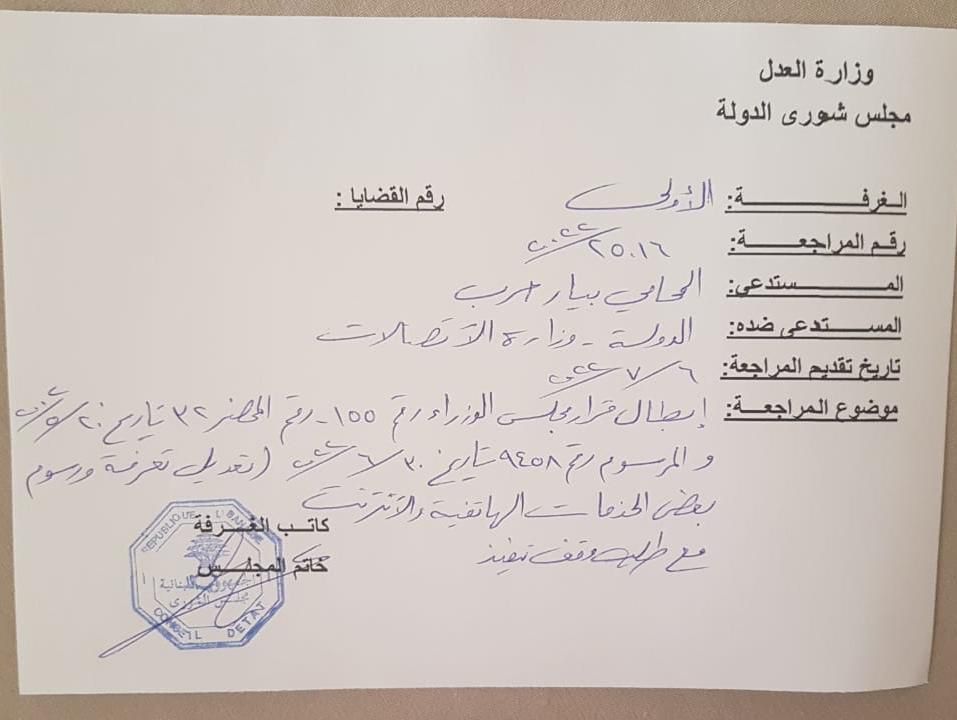 وزارة العدل
مجلس شورى الدولة
الغرفة: الأولى رقم القضايا :
رقم المراجعة: ٢٥٠١٦/٢٠٢٢
المستدعي: المحامي بيار حرب
المستدعى ضده: الدولة - وزارة الاتصالات
تاريخ تقديم المراجعة: ٦/٧/٢٠٢٢
موضوع المراجعة: إبطال قرار مجلس الوزراء رقم ١٥٥ - رقم المحضر ٣٢ تاريخ ٢٠/٥/٢٠٢٢
والمرسوم رقم ٩٤٥٨ تاريخ ٣٠/٦/٢٠٢٢ (تعديل تعرفة ورسوم
بعض الخدمات الهاتفية والانترنت
مع طلب وقف تنفيذ
كاتب الغرفة
خاتم المجلس
REPUBLIQUE LIBANAISE
الجمهورية اللبنانية
مجلس الشورى
CONSEIL DETAT